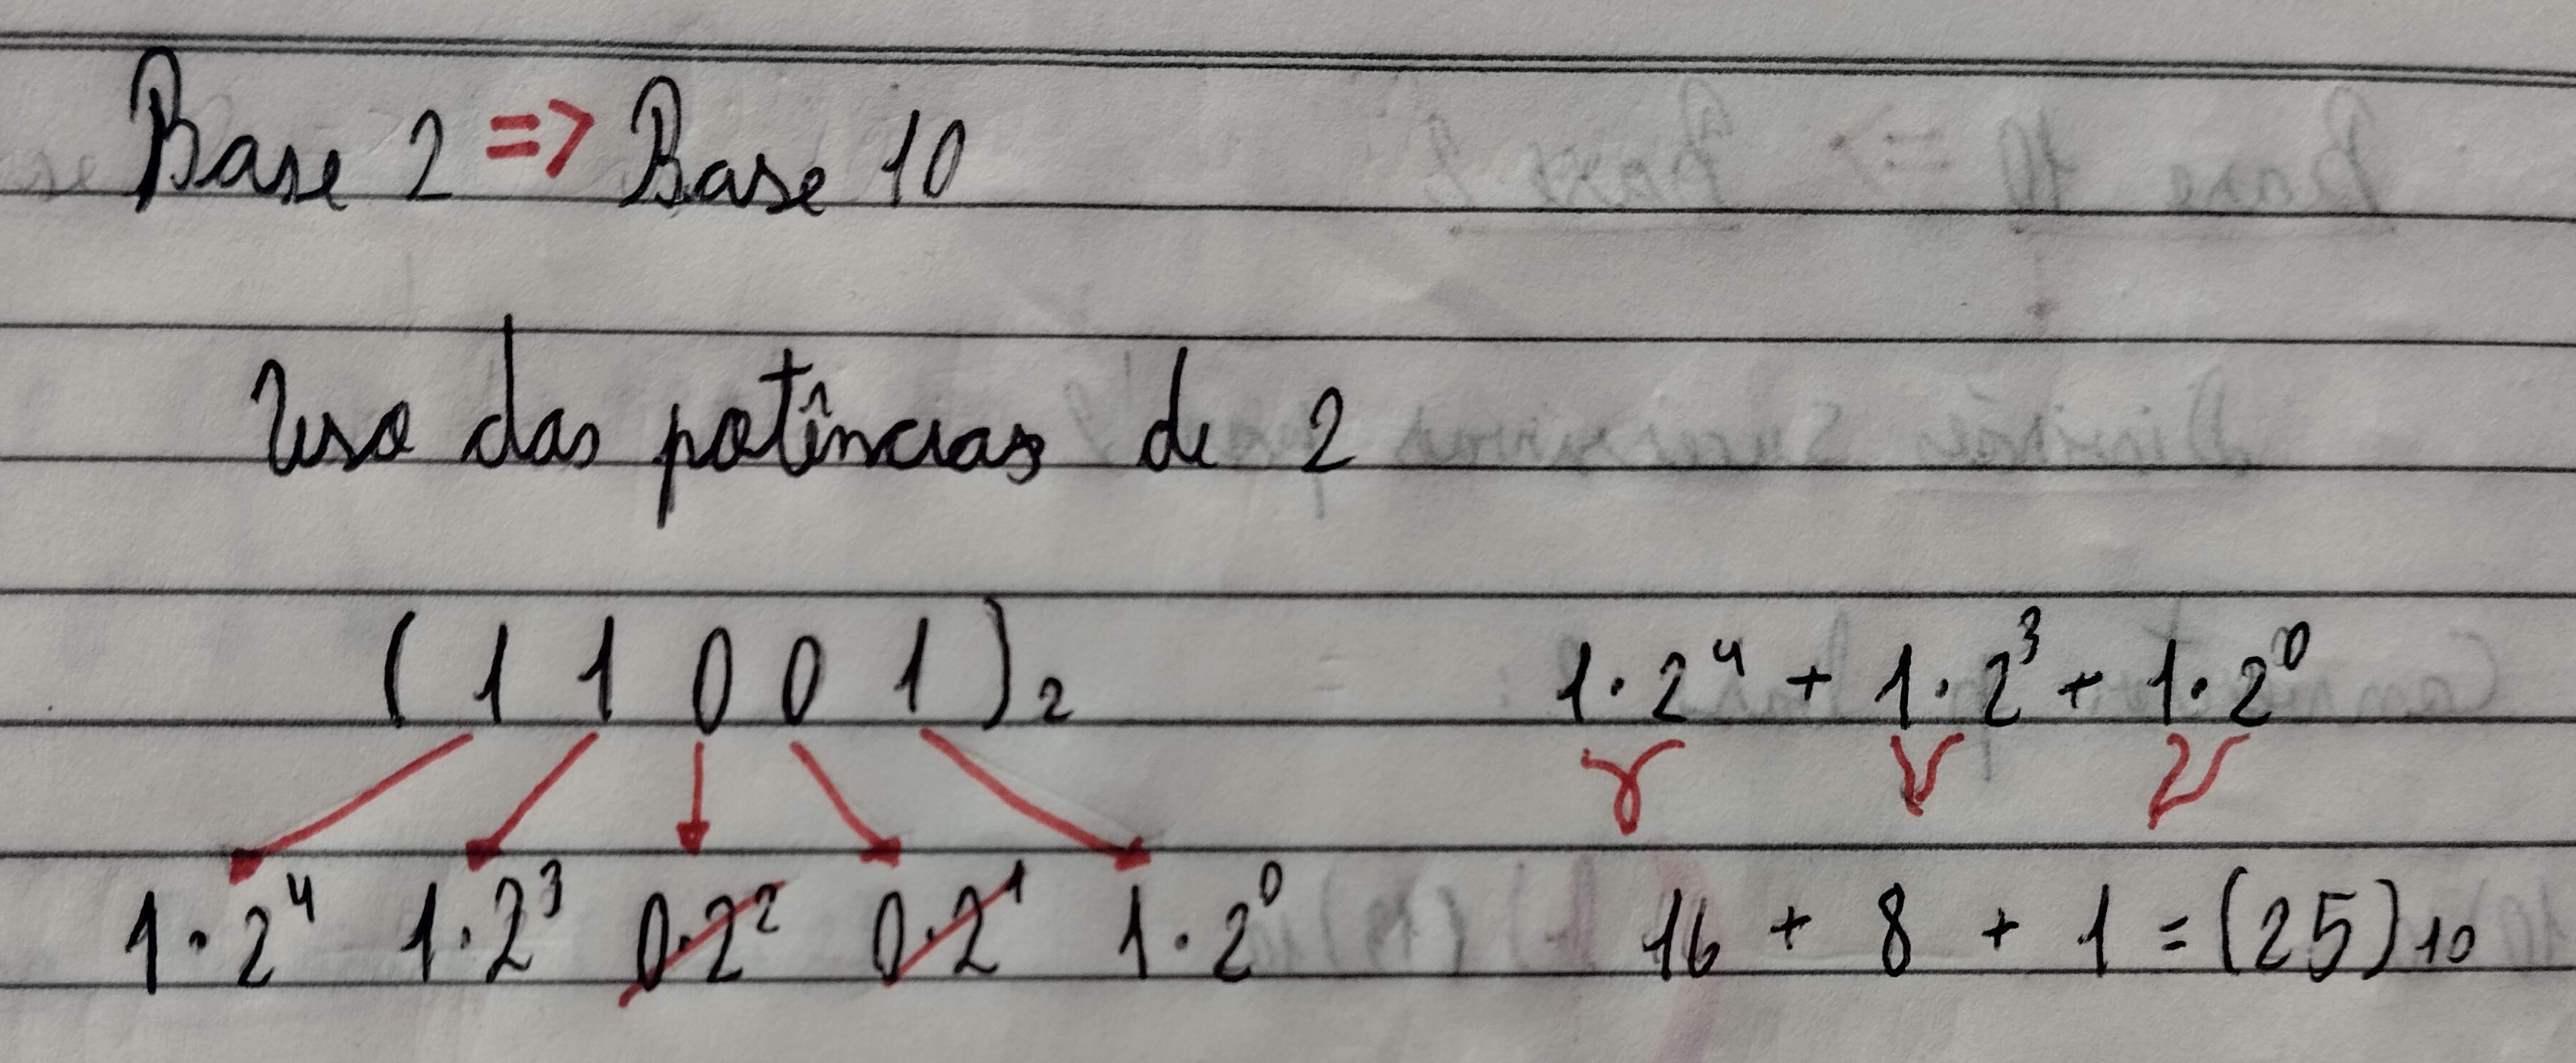 Base 2 => Base 10
Uso das potências de 2
(1 1 0 0 1)₂ 1·2⁴ + 1·2³ + 1·2⁰
1·2⁴ 1·2³ 0·2² 0·2¹ 1·2⁰ 16 + 8 + 1 = (25)₁₀